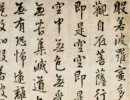 般若波羅蜜多
觀自在菩薩行
即是空空即是
空中無色無
無苦集滅道
有恐怖遠離